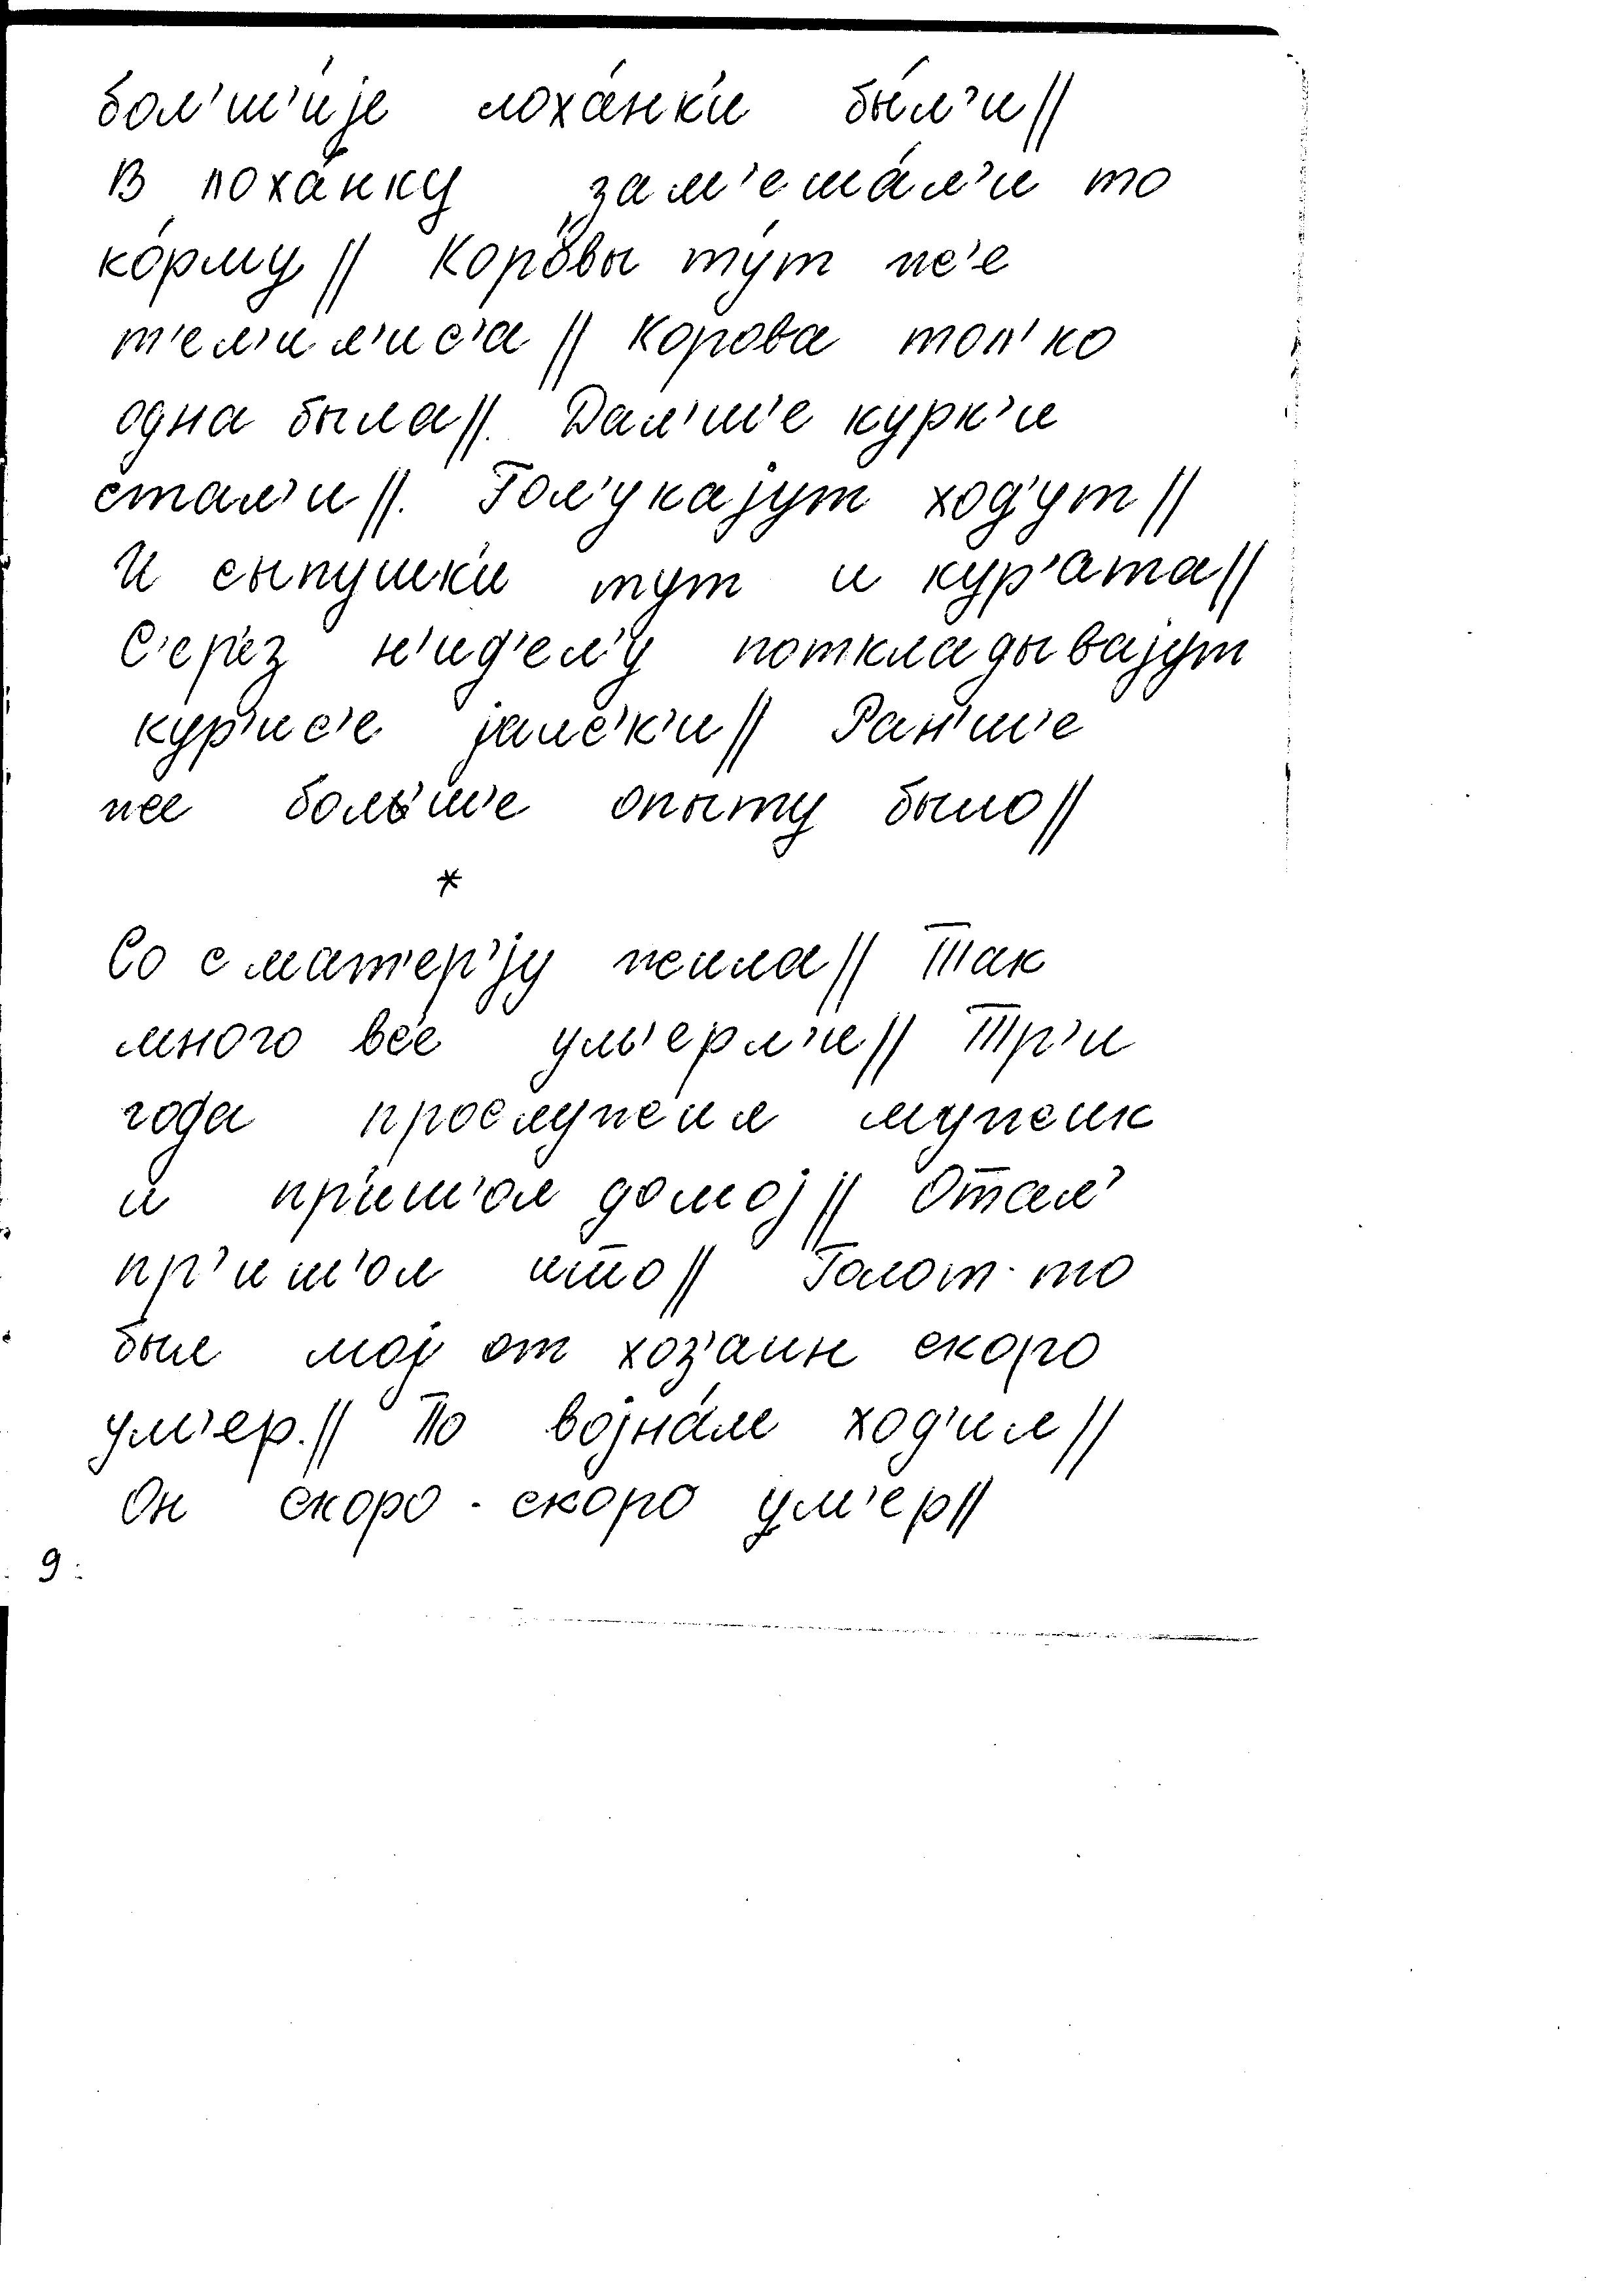 бол'ш'ије лоха́нк'и бы́л'и //
В лоха́нку зам'еша́л'и то
ко́рму // Коро́вы ту́т же'е
т'ел'ил'ис'а // Корова тол'ко
одна была //. Дал'ш'е курк'и
стал'и //. Гол'укајут ход'ут //
И сыпушк'и тут и кур'ата //
С'ер'ез н'ид'ел'у поткладывајут
кур'ис'е јаис'к'и // Ран'ш'е
же бол'ш'е опыту было //
*
Со с мат'ер'ју жыла // Так
много все ум'ерл'и // Тр'и
года прослужил мужик
и пр'иш'ол домој // Отал'
пр'иш'ол што // Голот-то
был мој от хоз'аин скоро
ум'ер. // По војна́м ход'ил //
Он скоро-скоро ум'ер //
9